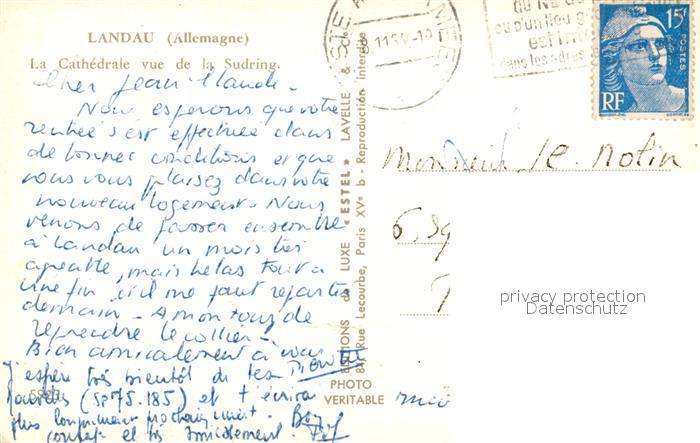 LANDAU (Allemagne)
La Cathédrale vue de la Sudring.
Cher Jean-Claude -
Nous esperons que votre
rentrée s'est effectuée dans
de bonnes conditions et que
vous vous plaisez dans votre
nouveau logement - Nous
venons de passer ensemble
à Landau un mois très
agréable, mais helas tout a
une fin et il me faut repartir
demain - A mon tour de
reprendre le collier -
Bien amicalement à vous
J'espère très bientôt de tes
(SP 75.185) et t'écrirai
plus longuement prochainement.
et très amicalement.
5827
EDITIONS de LUXE « ESTEL » LAVELLE &
Rue Lecourbe, Paris XVe b - Reproduction interdite
PHOTO
VERITABLE
POSTE AUX ARMÉES
11 50
ou d'un lieu
dans les adres
15F
POSTES
RF
Monsieur Le
6,
privacy protection
Datenschutz